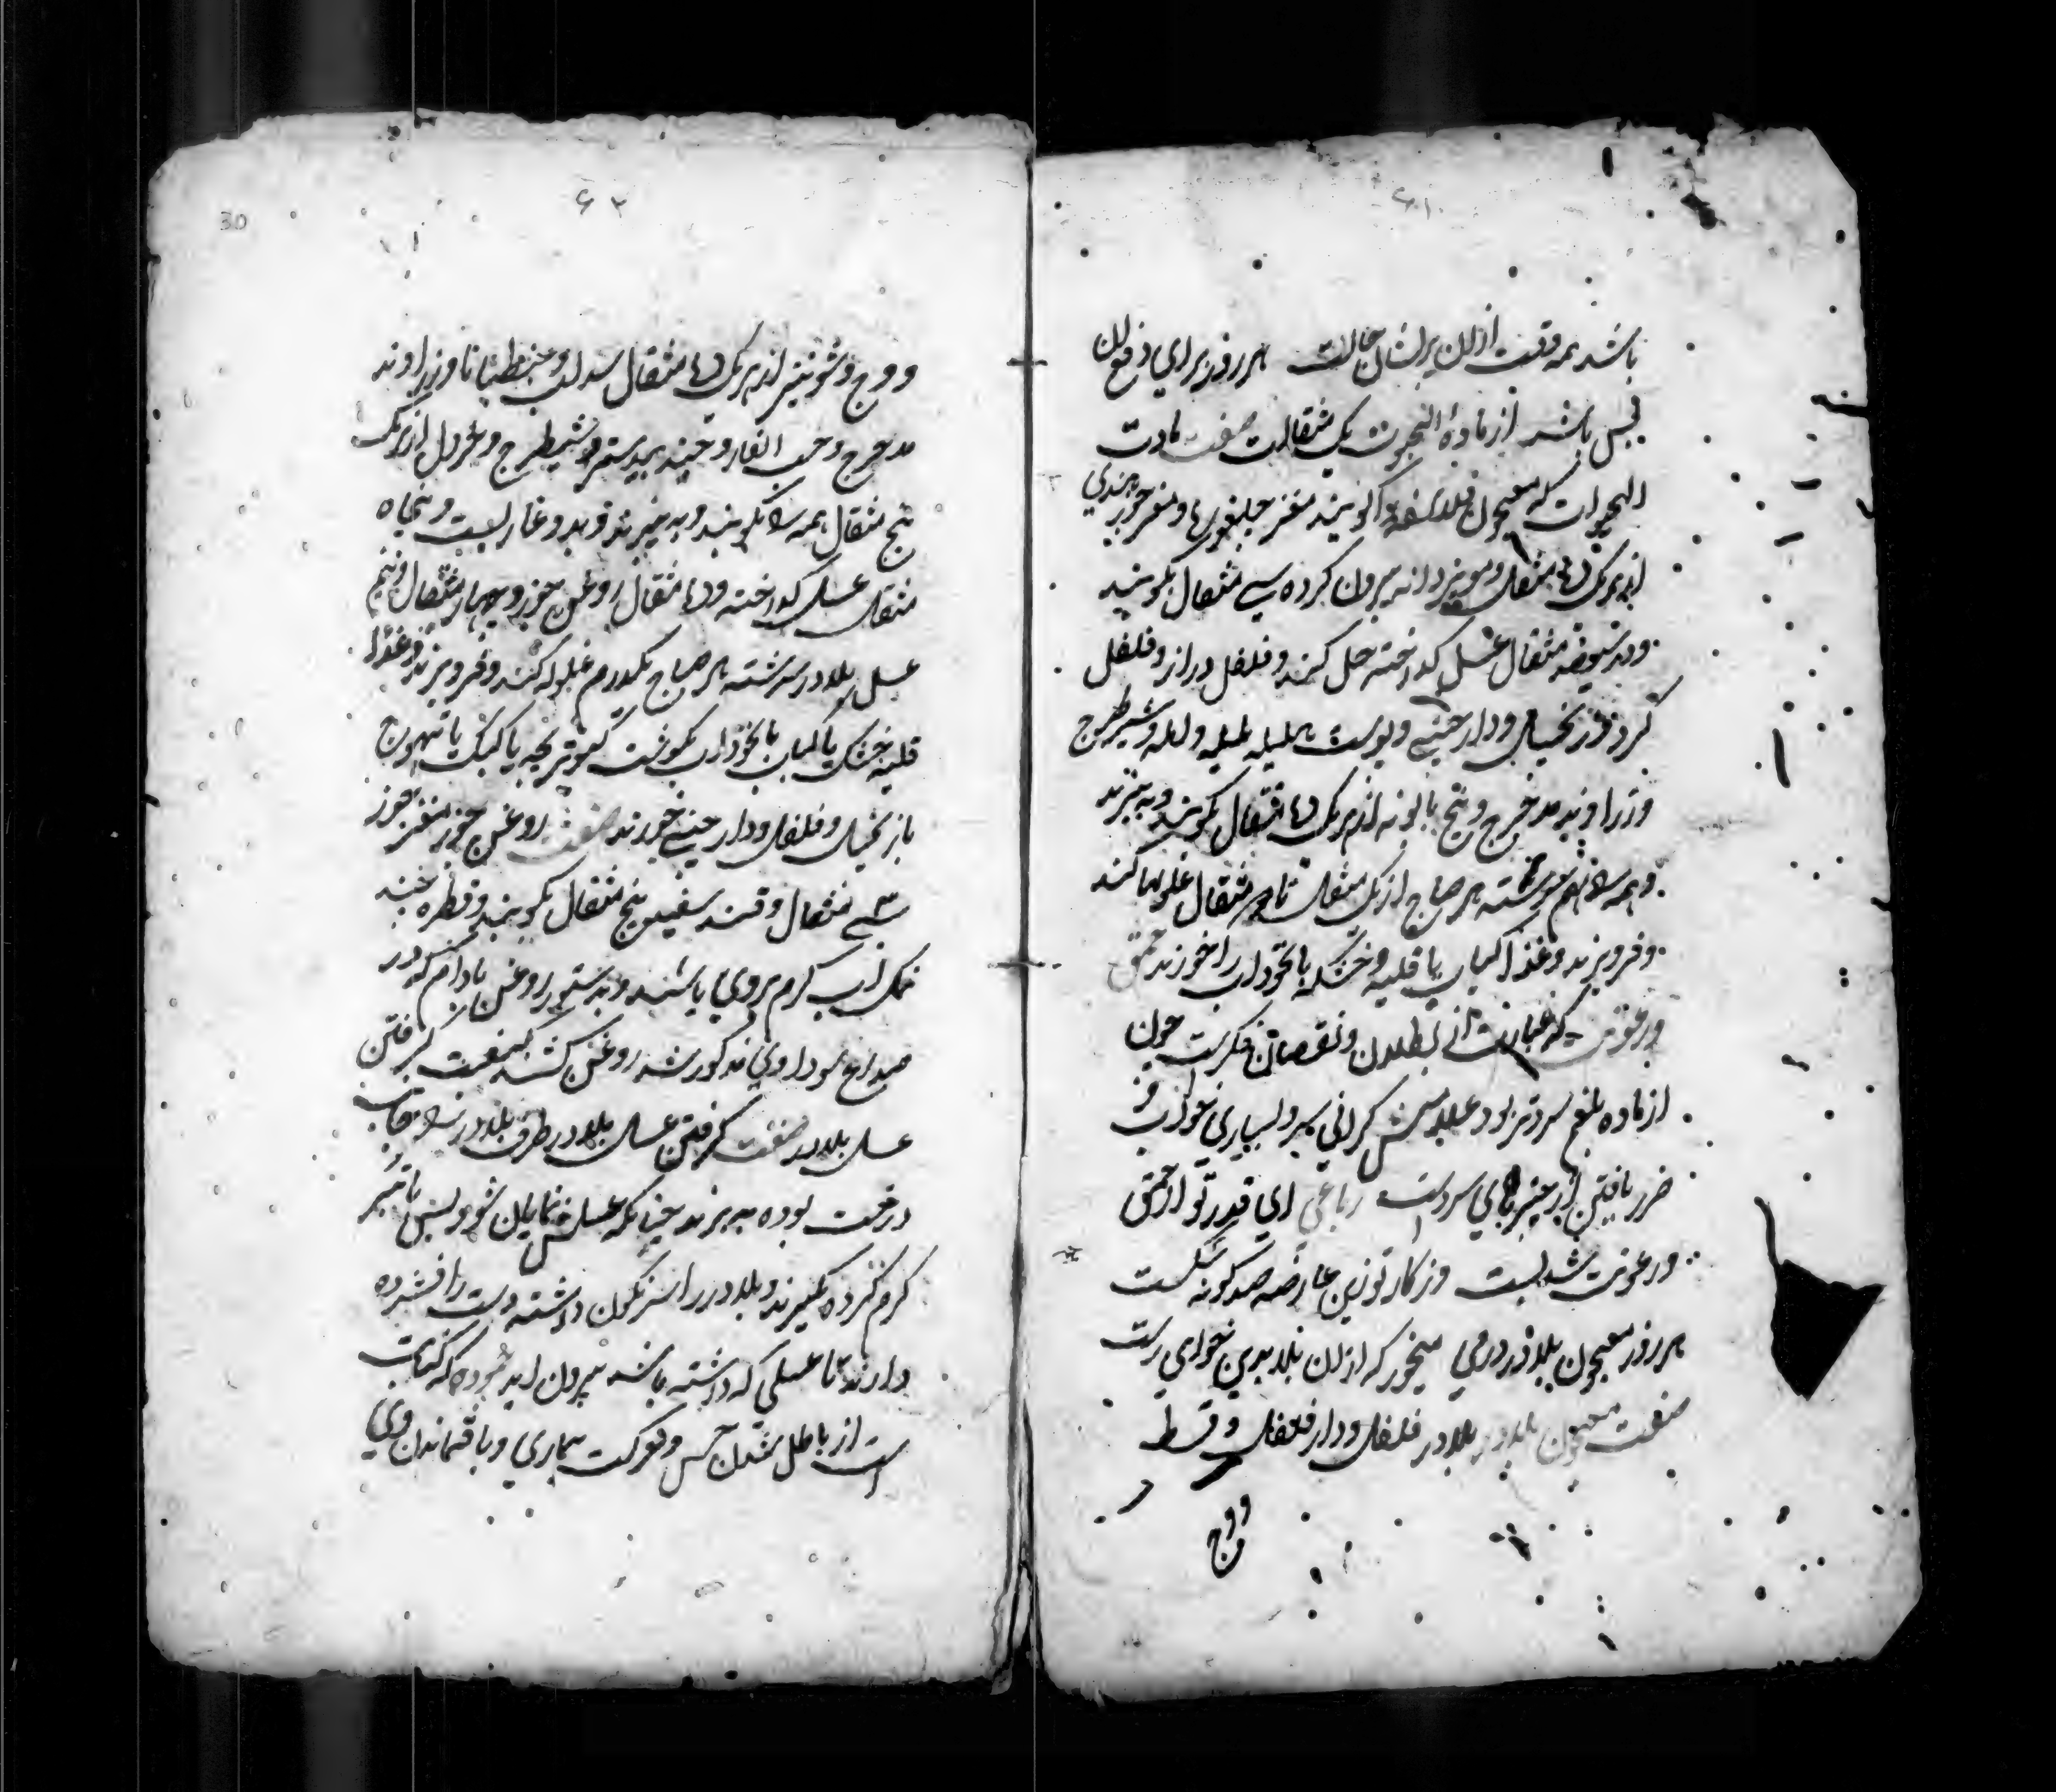 ۶۱
باشد همه وقت ازان پریشان حالت هر روز برای دفع آن
بس باشد از مادة الحیوت یک مثقالت صفت مادت
الحیوات که معجون فلاسفه گویند مغز چلغوزه و مغز جوز هندی
از هر یک ده مثقال و مویز دانه بیرون کرده سی مثقال بکوبند
مثقال عسل گداخته حل کنند و فلفل دراز و فلفل
گرد و زنجبیل و دارچینی و پوست هلیله بلیله و آمله و شیطرج
و زراوند مدحرج و بیخ بابونه از هر یک ده مثقال بکوبند و به بیزند
و همه را بهم سرشته هر صباح از یک مثقال تا دو مثقال غلولها کنند
و فرو برند و غذا کباب یا قلیه و خشکه با نخوداب را خورند حمق
و رعونت که عبارت از بطلان و نقصان فکرست چون
از ماده بلغم سرد تر بود علامتش گرانی سر و بسیاری خواب و
ضرر یافتن از چیزهای سردست رباعی ای قدر تو از حمق
و رعونت شده پست وز کار تو زین عارضه صد گونه شکست
هر روز معجون بلادر درمی میخور که ازان بلا بدین خواهی رست
صفت معجون بلادر بلادر فلفل و دارفلفل و قسط
و وج
۶۲
30
و وج و شونیز از هر یک ده مثقال سداب و جنطیانا و زراوند
مدحرج و حب الغار و جندبیدستر و شیطرج و خردل از هر یک
پنج مثقال همه را بکوبند و به بیزند و بصد و پنجاه
مثقال عسل گداخته و ده مثقال روغن جوز و چهار مثقال و نیم
عسل بلادر سرشته هر صباح یکدرم غلوله کنند و فرو برند و غذا
قلیه خشک یا کباب یا نخوداب بگوشت کبوتر بچه یا کبک یا تیهوج
با زنجبیل و فلفل و دارچینی خورند صفت روغن جوز مغز جوز
مثقال و قند سفید پنج مثقال بکوبند و قطره چند
نمک آب گرم بروی پاشند و بدستور روغن بادام که در
صداع سوداوی مذکور شد روغن کشند کیفیت گرفتن
عسل بلادر صفت گرفتن عسل بلادر طرف بلادر را که بجانب
درخت بوده ببرند چنانکه عسلش نمایان شود پس
گرم کرده بگیرند و بلادر را سرنگون داشته دست را فشرده
دارند تا عسلی که داشته باشد بیرون آید که کنایت
است از باطل شدن حس و حرکت بیماری و باقیماندن وی